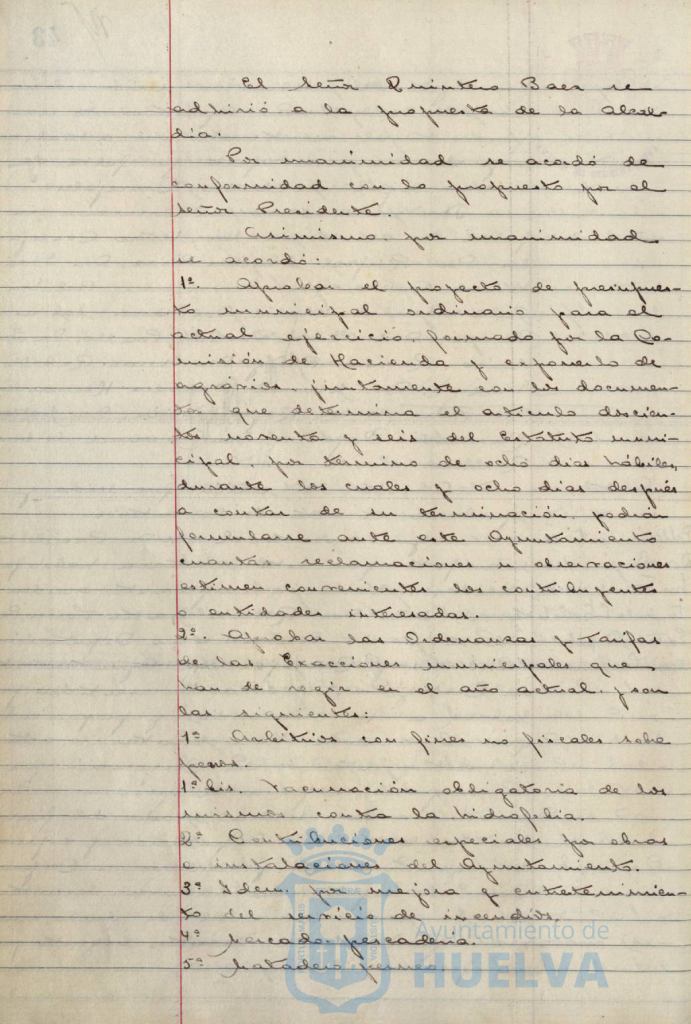 El Señor Quintero Baez se
adhirió a la propuesta de la Alcal-
dia.
Por unanimidad se acordó de
conformidad con lo propuesto por el
Señor Presidente.
Asimismo, por unanimidad
se acordó:
1º. Aprobar el proyecto de presupues-
to municipal ordinario para el
actual ejercicio, formado por la Co-
misión de Hacienda y exponerlo de
agravios, juntamente con los documen-
tos que determina el articulo doscien-
tos noventa y seis del Estatuto muni-
cipal, por termino de ocho dias hábiles,
durante los cuales y ocho dias después
a contar de su terminación, podrán
formularse ante este Ayuntamiento
cuantas reclamaciones u observaciones
estimen convenientes los contribuyentes
o entidades interesadas.
2º. Aprobar las Ordenanzas y Tarifas
de las Exacciones municipales que
han de regir en el año actual, y son
las siguientes:
1ª Arbitrios con fines no fiscales sobre
perros.
1ª bis. Vacunación obligatoria de los
mismos contra la hidrofobia.
2ª Contribuciones especiales por obras
e instalaciones del Ayuntamiento.
3ª Idem. por mejora y entretenimien-
to del servicio de incendios.
4ª Mercado, pescaderia.
5ª Matadero
Ayuntamiento de
HUELVA